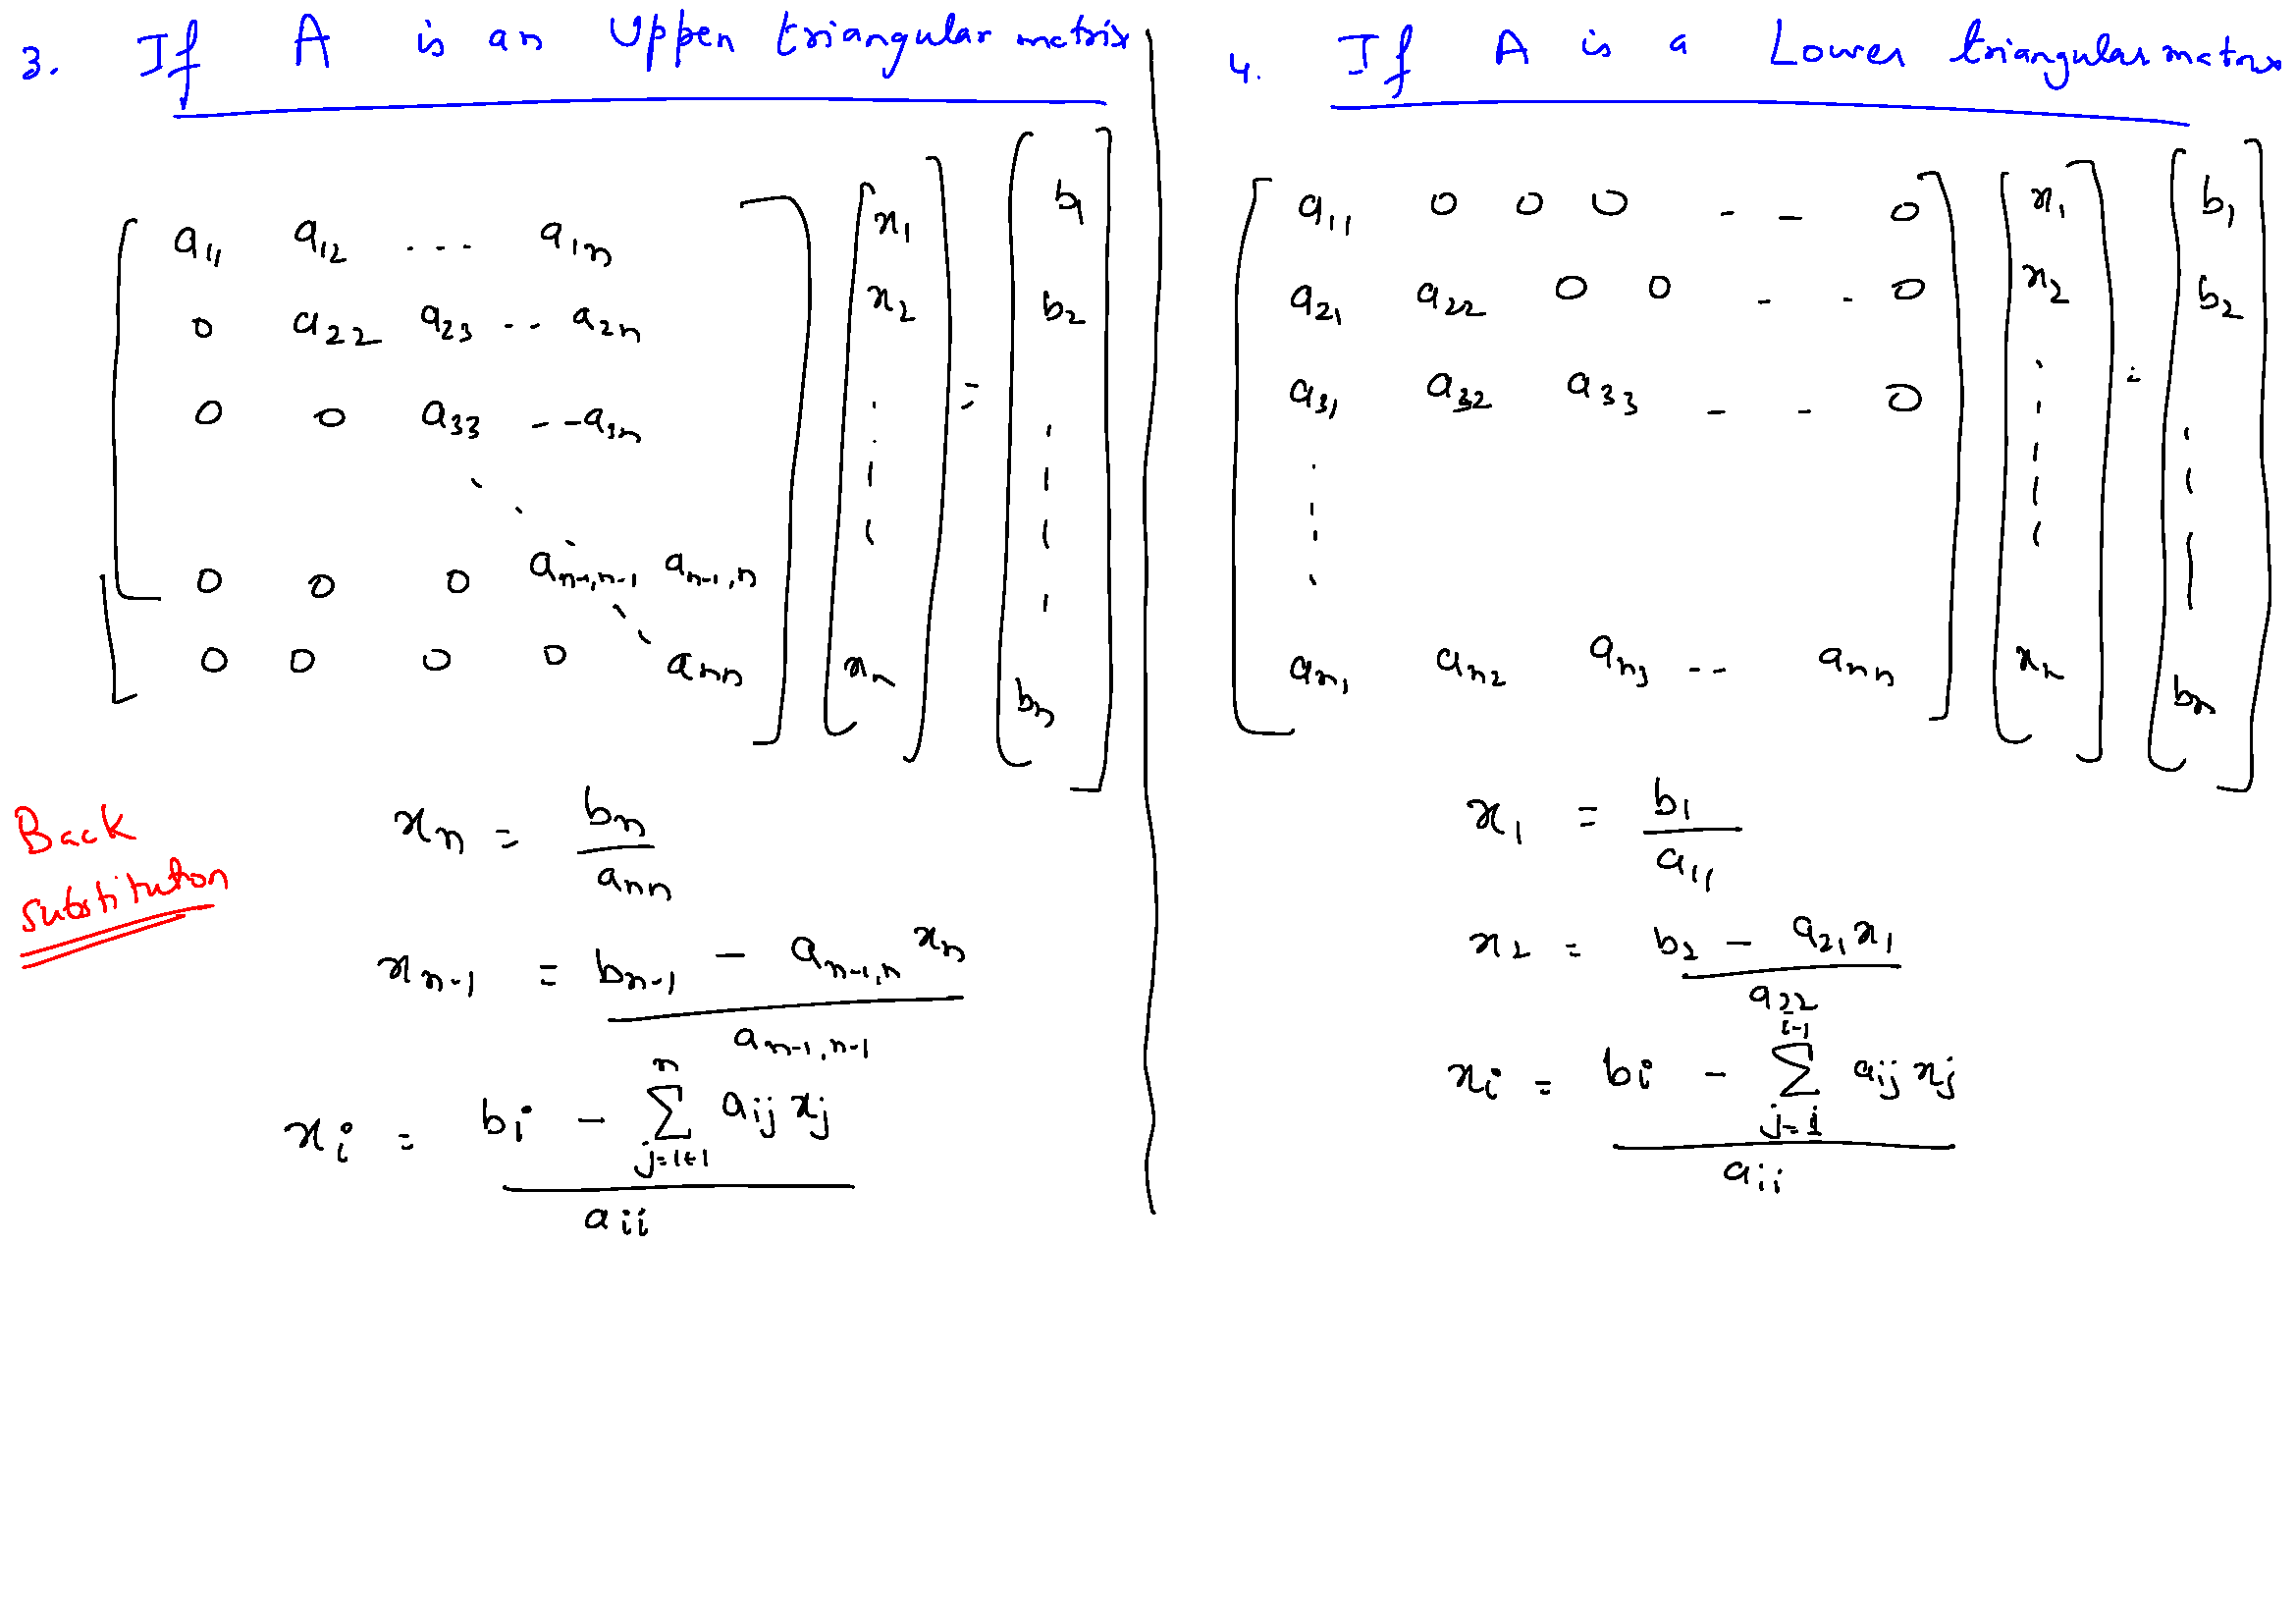 3. If A is an Upper triangular matrix
[ a11 a12 ... a1n ] [ x1 ] = [ b1 ]
0 a22 a23 .. a2n x2 b2
0 0 a33 -- a3n
0 0 0 an-1,n-1 an-1,n
0 0 0 0 ann xn bn
Back
substitution
xn = bn / ann
xn-1 = bn-1 - an-1,n xn / an-1,n-1
xi = bi - Σ j=i+1 n aij xj / aii
4. If A is a Lower triangular matrix
[ a11 0 0 0 - - 0 ] [ x1 ] = [ b1 ]
a21 a22 0 0 - - 0 x2 b2
a31 a32 a33 - - 0
an1 an2 an3 -- ann xn bn
x1 = b1 / a11
x2 = b2 - a21 x1 / a22
xi = bi - Σ j=1 i-1 aij xj / aii